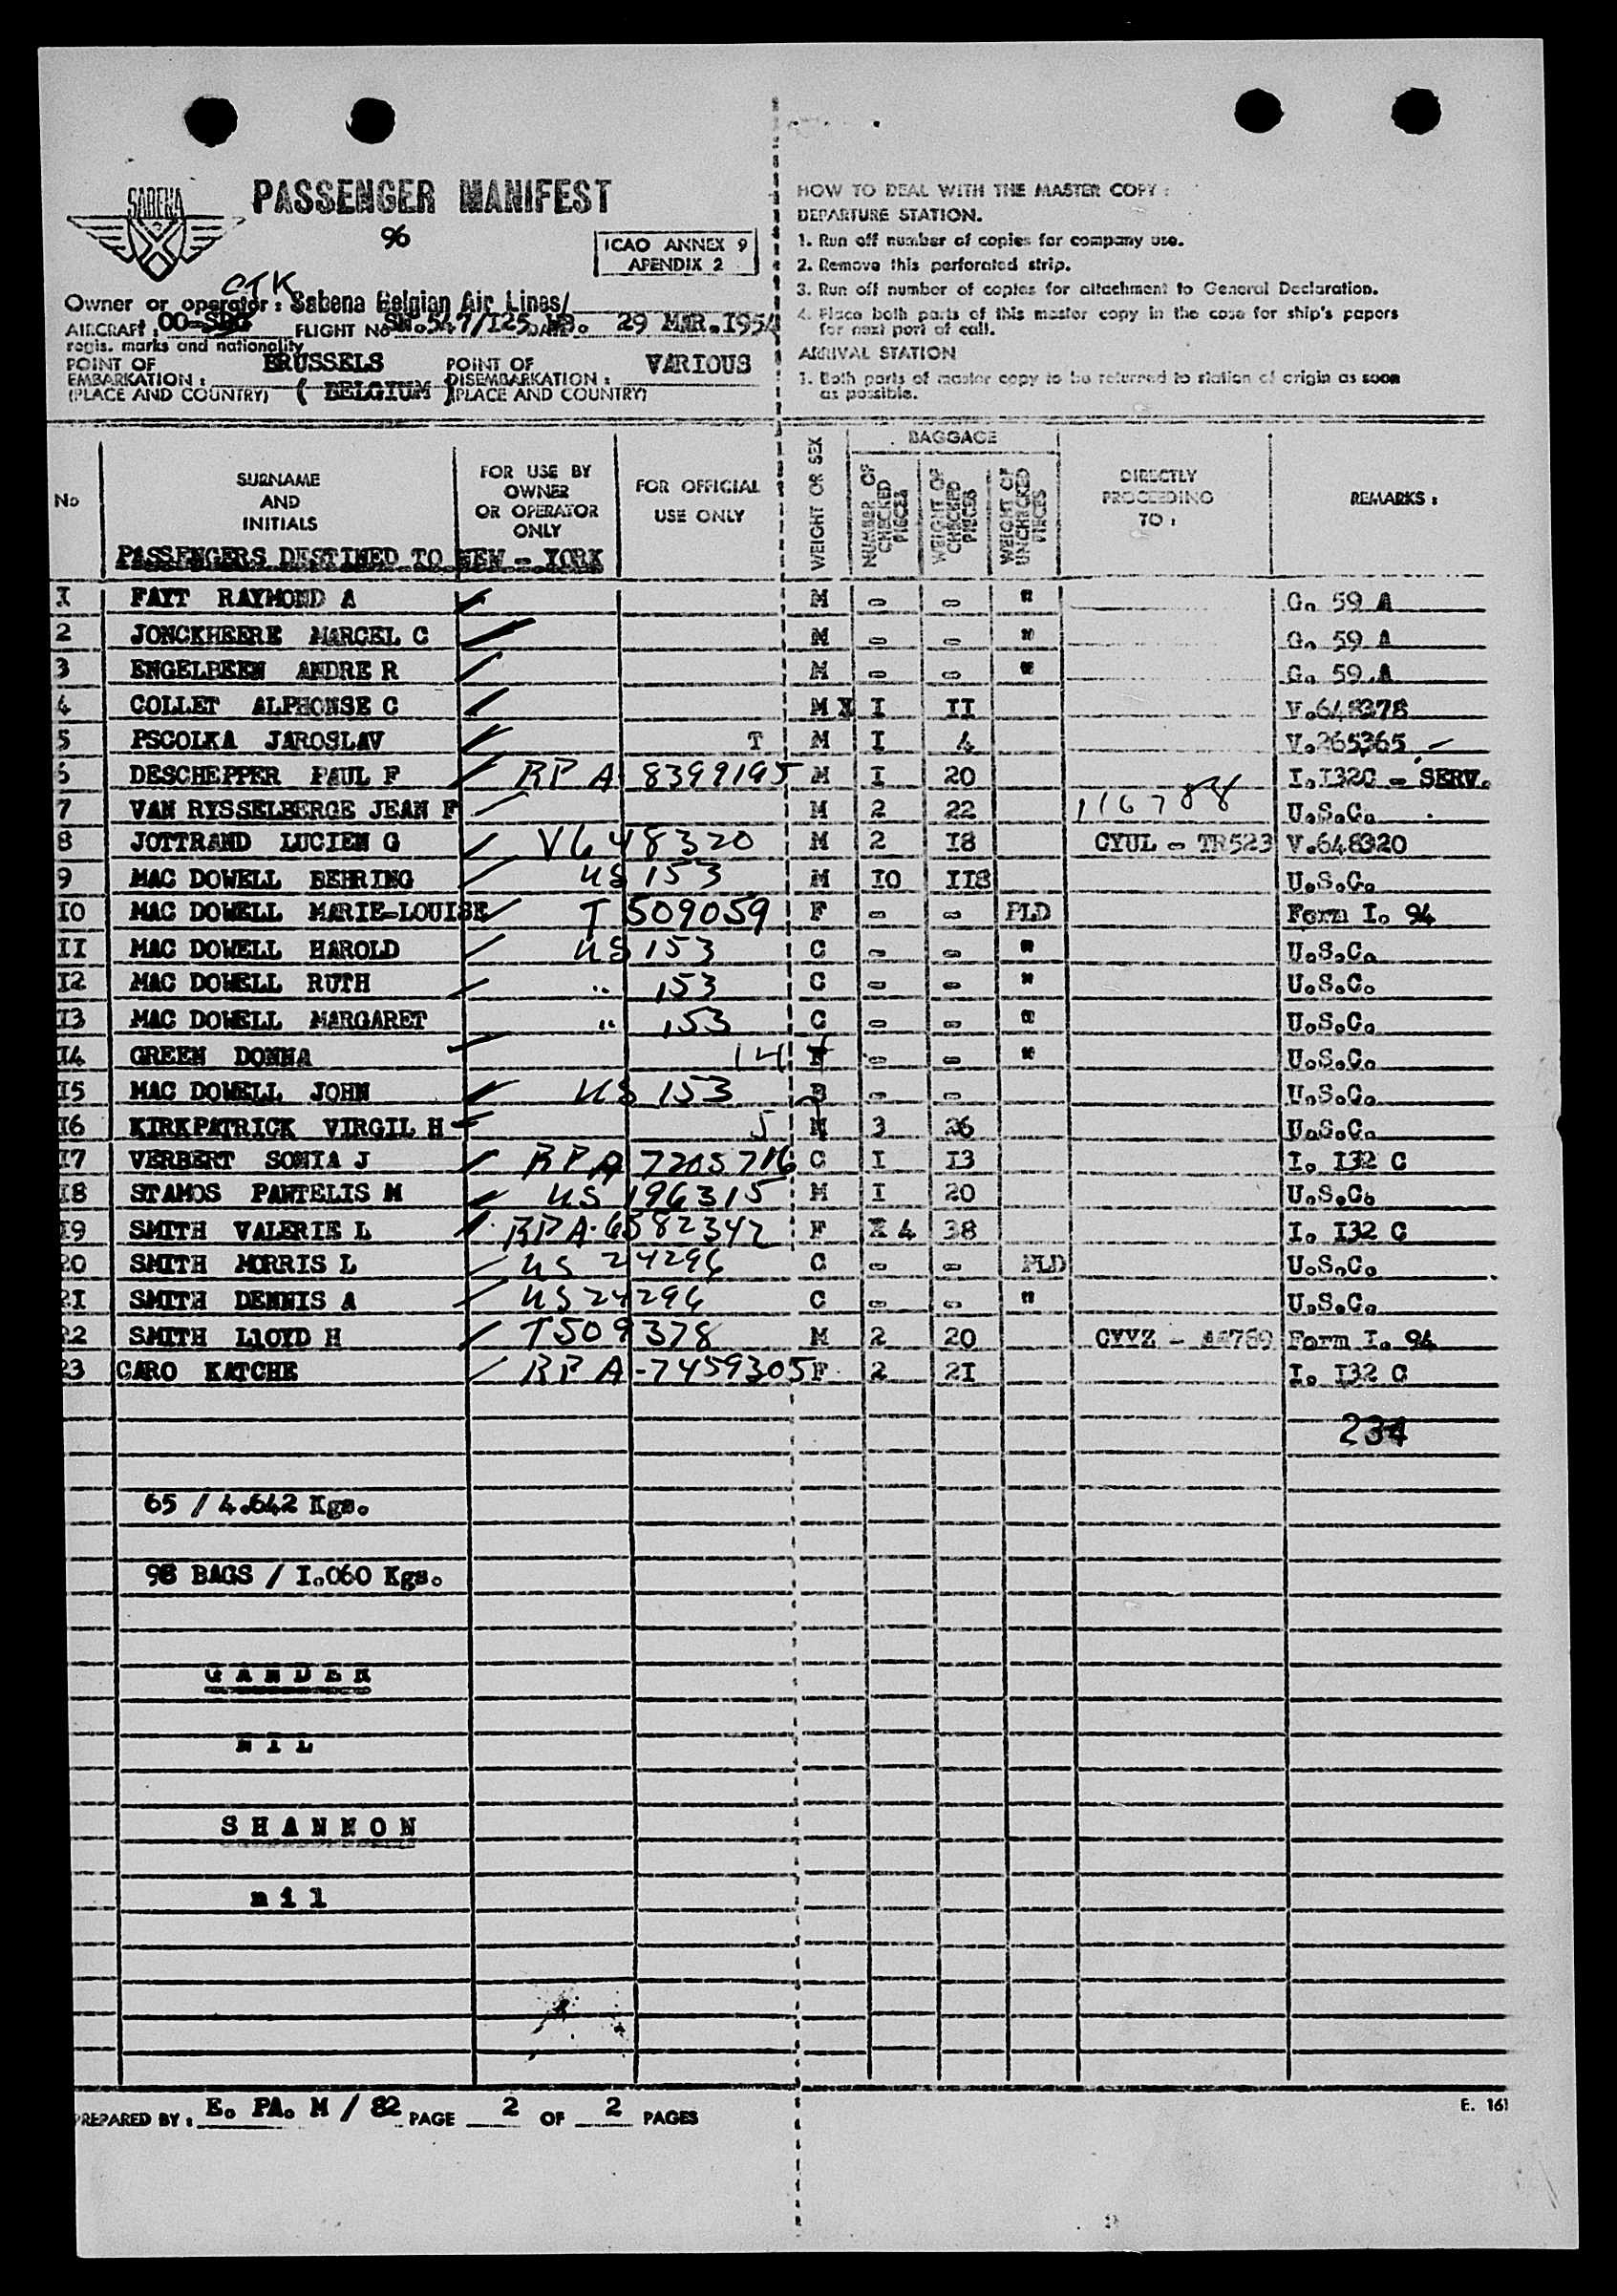 SABENA
PASSENGER MANIFEST
96
ICAO ANNEX 9
APENDIX 2
CTK
Owner or operator : Sabena Belgian Air Lines/
AIRCRAFT : OO- FLIGHT No SN.547/I25 DATE 29 MAR.I954
regis. marks and nationality
POINT OF EMBARKATION : BRUSSELS POINT OF DISEMBARKATION : VARIOUS
(PLACE AND COUNTRY) ( BELGIUM ) (PLACE AND COUNTRY)
HOW TO DEAL WITH THE MASTER COPY :
DEPARTURE STATION.
1. Run off number of copies for company use.
2. Remove this perforated strip.
3. Run off number of copies for attachment to General Declaration.
4. Place both parts of this master copy in the case for ship's papers
for next port of call.
ARRIVAL STATION
1. Both parts of master copy to be returned to station of origin as soon
as possible.
No SURNAME AND INITIALS FOR USE BY OWNER OR OPERATOR ONLY FOR OFFICIAL USE ONLY WEIGHT OR SEX BAGGAGE NUMBER OF CHECKED PIECES WEIGHT OF CHECKED PIECES WEIGHT OF UNCHECKED PIECES DIRECTLY PROCEEDING TO : REMARKS :
PASSENGERS DESTINED TO NEW - YORK
I FAYT RAYMOND A M - - " G. 59 A
2 JONCKHEERE MARCEL C M - - " G. 59 A
3 ENGELBEEN ANDRE R M - - " G. 59.A
4 COLLET ALPHONSE C M X I II V.648378
5 PSCOLKA JAROSLAV T M I 4 V.265365
6 DESCHEPPER PAUL F RPA 8399195 M I 20 I.I32C - SERV.
7 VAN RYSSELBERGE JEAN F M 2 22 116788 U.S.C.
8 JOTTRAND LUCIEN G V648320 M 2 I8 CYUL - TR523 V.648320
9 MAC DOWELL BEHRING US 153 M IO II8 U.S.C.
IO MAC DOWELL MARIE-LOUISE T 509059 F - - PLD Form I. 94
II MAC DOWELL HAROLD US 153 C - - " U.S.C.
I2 MAC DOWELL RUTH " 153 C - - " U.S.C.
I3 MAC DOWELL MARGARET " 153 C - - " U.S.C.
I4 GREEN DONNA 14 F - - " U.S.C.
I5 MAC DOWELL JOHN US 153 B - - U.S.C.
I6 KIRKPATRICK VIRGIL H 5 M 3 26 U.S.C.
I7 VERBERT SONIA J RPA 7205716 C I I3 I. I32 C
I8 STAMOS PANTELIS M US 196315 M I 20 U.S.C.
I9 SMITH VALERIE L RPA-6582342 F X 4 38 I. I32 C
20 SMITH MORRIS L US 24296 C - - PLD U.S.C.
2I SMITH DENNIS A US 24296 C - - " U.S.C.
22 SMITH LlOYD H T509378 M 2 20 CYYZ - AA789 Form I. 94
23 CARO KATCHE RPA-7459305 F 2 2I I. I32 C
234
65 / 4.642 Kgs.
98 BAGS / I.060 Kgs.
G A N D E R
N I L
S H A N N O N
n i l
PREPARED BY : E. PA. M / 82 PAGE 2 OF 2 PAGES
E. 161